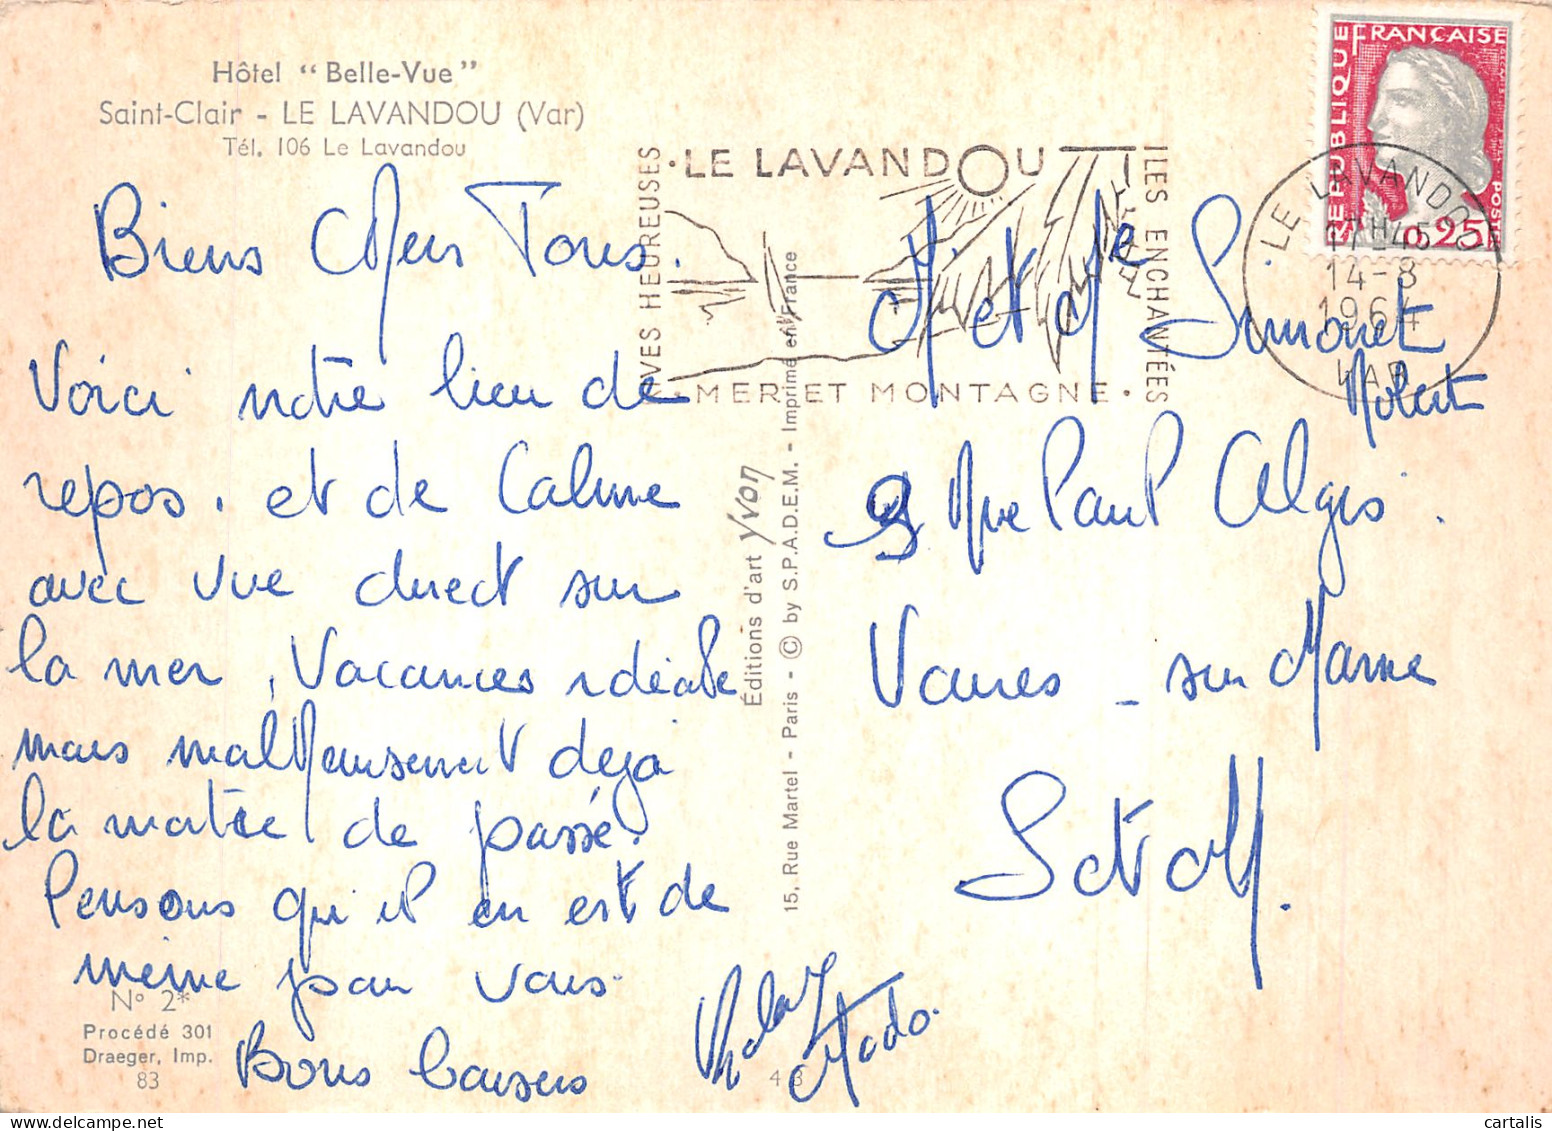 Hôtel “Belle-Vue”
Saint-Clair - LE LAVANDOU (Var)
Tél. 106 Le Lavandou
Biens Chers Tous.
Voici notre lieu de
repos. et de Calme
avec vue direct sur
la mer, Vacances idéale
mais malheureusement déja
la moitié de passé.
Pensons qu'il en est de
meme pour vous.
Bons baisers
Dado.
N° 2*
Procédé 301
Draeger, Imp.
83
Éditions d'art Yvon
15, Rue Martel - Paris - © by S.P.A.D.E.M. - Imprimé en France
4 3
·LE LAVANDOU
ILES ENCHANTÉES
MER ET MONTAGNE·
VES HEUREUSES
RÉPUBLIQUE FRANÇAISE
POSTES
0,25F
LE LAVANDOU
17H45
14-8
1964
VAR
M et Me Simonet
Robert
9 Rue Paul Algis.
Vaires - sur Marne
S et M.
cartalis